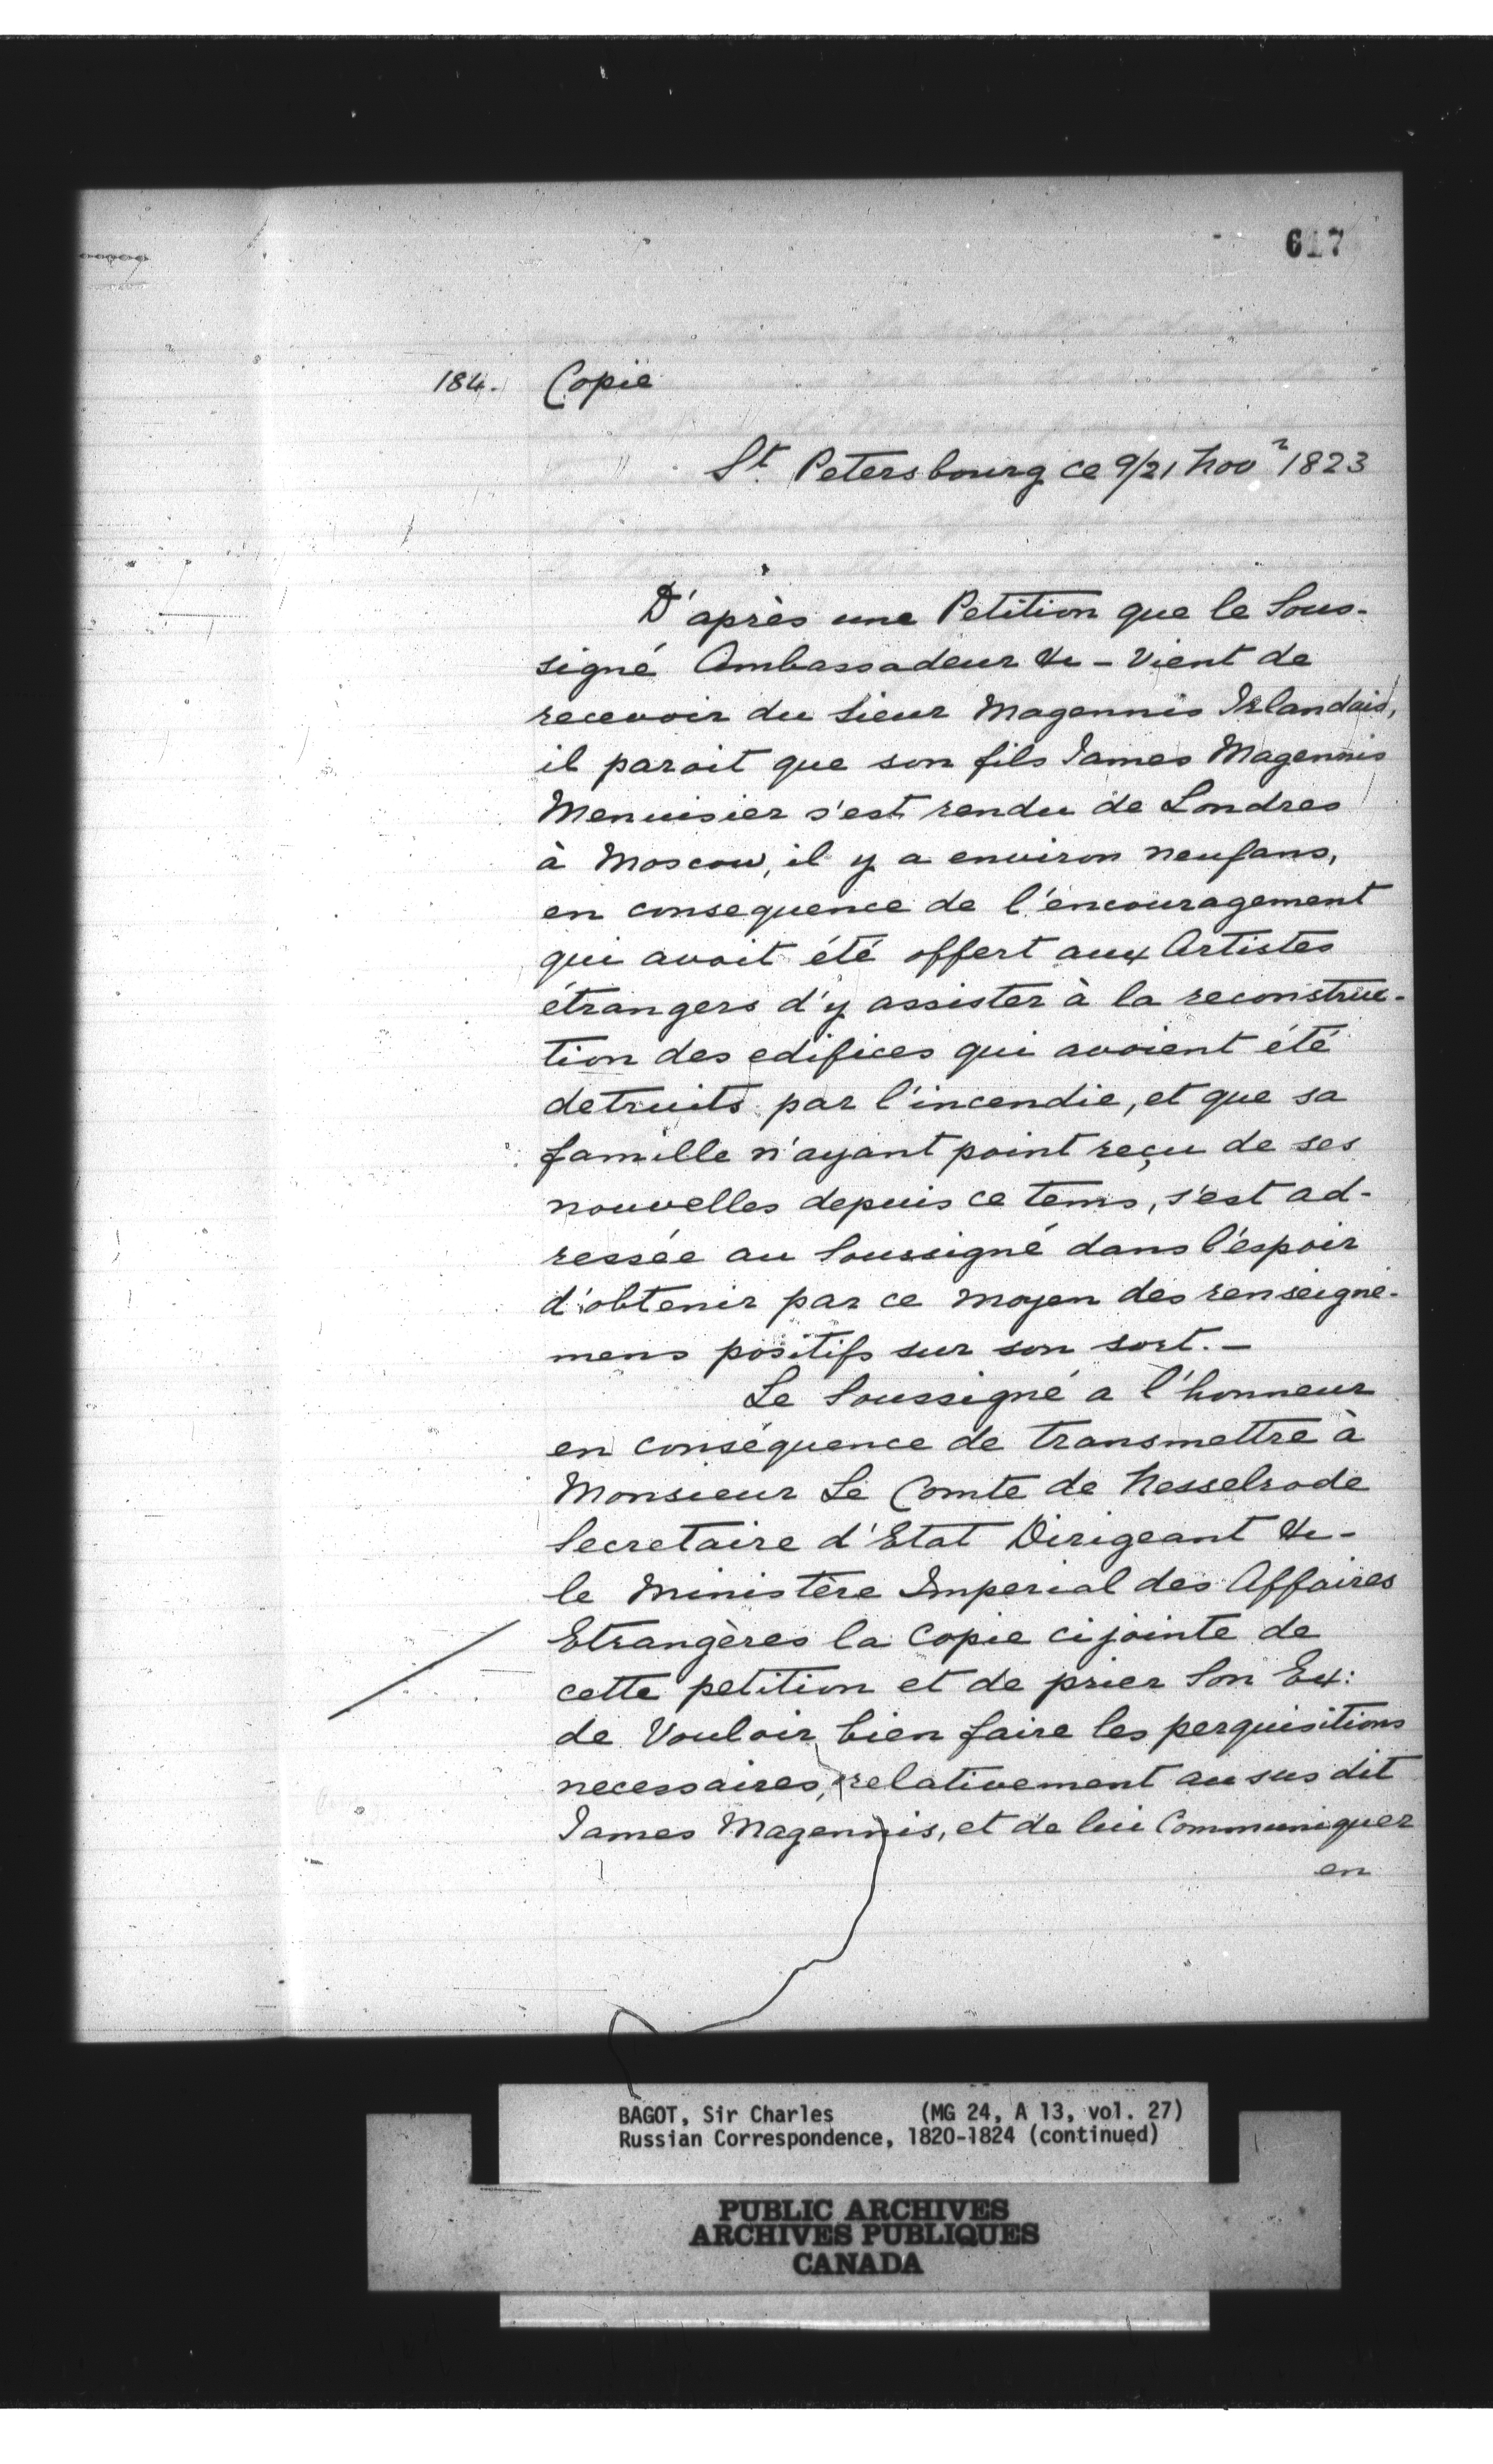 617
184. Copie
St. Petersbourg ce 9/21 Novr 1823
D'après une Petition que le Sous-
signé Ambassadeur &c - Vient de
recevoir du Sieur Magennis Irlandais,
il paroit que son fils James Magennis
Menuisier s'est rendu de Londres
à Moscow, il y a environ neuf ans,
en consequence de l'encouragement
qui avoit été offert aux Artistes
étrangers d'y assister à la reconstruc-
tion des edifices qui avoient été
detruits par l'incendie, et que sa
famille n'ayant point reçu de ses
nouvelles depuis ce tems, s'est ad-
ressée au Soussigné dans l'éspoir
d'obtenir par ce moyen des renseigne-
mens positifs sur son sort. -
Le Soussigné a l'honneur
en conséquence de transmettre à
Monsieur Le Comte de Nesselrode
Secretaire d'Etat Dirigeant &c -
le Ministère Imperial des Affaires
Etrangères la Copie cijointe de
cette petition et de prier Son Ex:
de Vouloir bien faire les perquisitions
necessaires, relativement au sus dit
James Magennis, et de lui Communiquer
en
BAGOT, Sir Charles (MG 24, A 13, vol. 27)
Russian Correspondence, 1820-1824 (continued)
PUBLIC ARCHIVES
ARCHIVES PUBLIQUES
CANADA